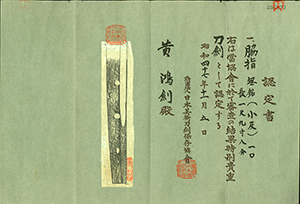 認定書
一、脇指 短銘(小反) 一口
長一尺九寸八分
右は當協會に於て審査の結果特別貴重
刀劍として認定する
昭和四十七年十一月五日
財團法人日本美術刀劍保存協會
黄鴻創殿